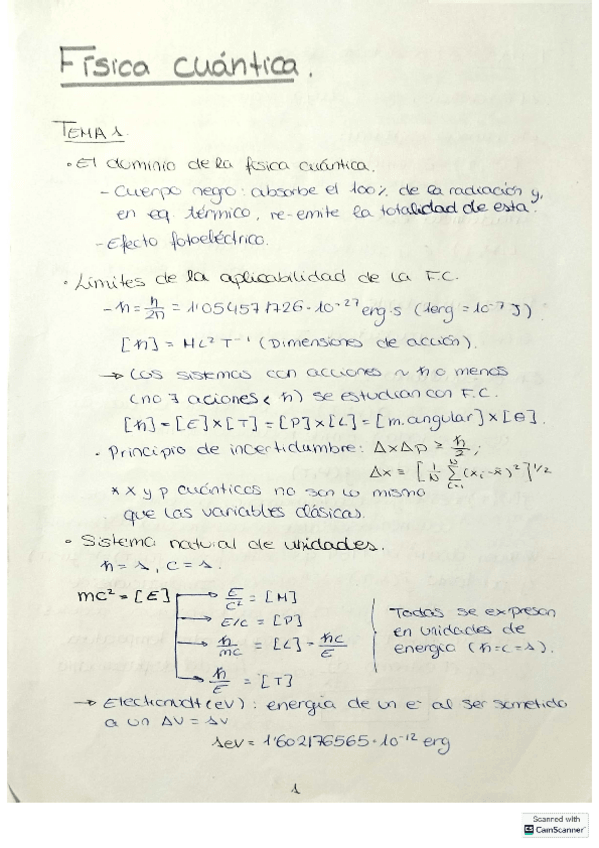 Física cuántica.
TEMA 1.
• El dominio de la física cuántica.
- Cuerpo negro: absorbe el 100% de la radiación y,
en eq. térmico, re-emite la totalidad de esta.
- Efecto fotoeléctrico.
• Límites de la aplicabilidad de la F.C.
- ħ = h/2π = 1'054571726·10⁻²⁷ erg·s (1erg = 10⁻⁷ J)
[ħ] = ML² T⁻¹ (Dimensiones de acción).
→ Los sistemas con acciones ~ ħ o menos
(no ∃ aciones < ħ) se estudian con F.C.
[ħ] = [E]×[T] = [P]×[L] = [m.angular]×[θ].
• Principio de incertidumbre: ΔxΔp ≥ ħ/2;
Δx = [1/N ∑ᵢ₌₁ᴺ (xᵢ-x̄)²]^1/2
* x y p cuánticos no son lo mismo
que las variables clásicas.
• Sistema natural de unidades.
ħ = 1, c = 1.
mc² = [E] → E/c² = [M]
→ E/c = [P]
→ ħ/mc = [L] = ħc/E
→ ħ/E = [T]
Todas se expresan
en unidades de
energía (ħ=c=1).
→ Electronvolt (eV): energía de un e⁻ al ser sometido
a un ΔV = 1V
1eV = 1'602176565·10⁻¹² erg
1
Scanned with
CamScanner